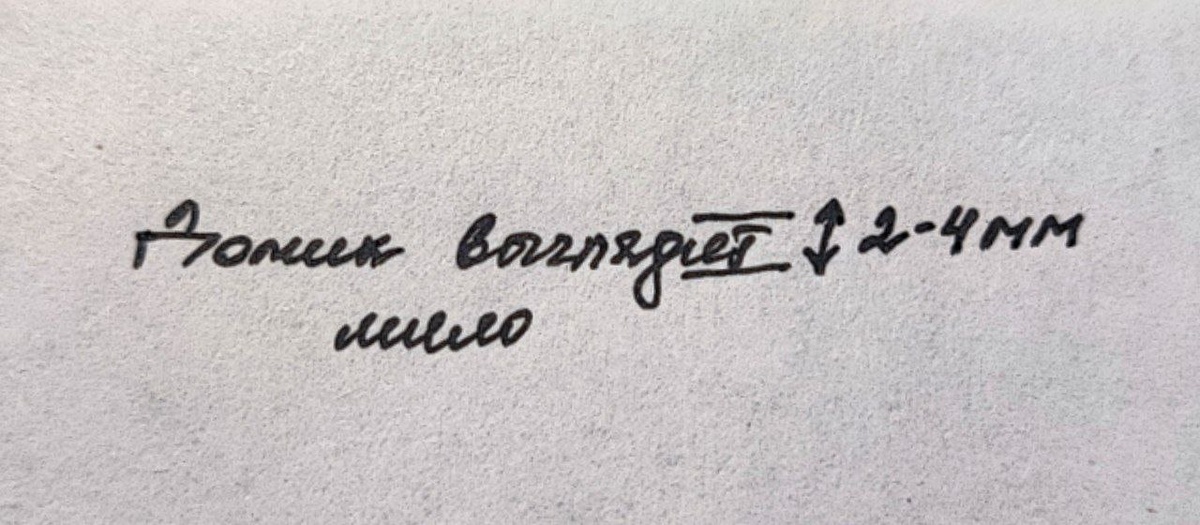 Домик выглядет 2-4 мм
мило